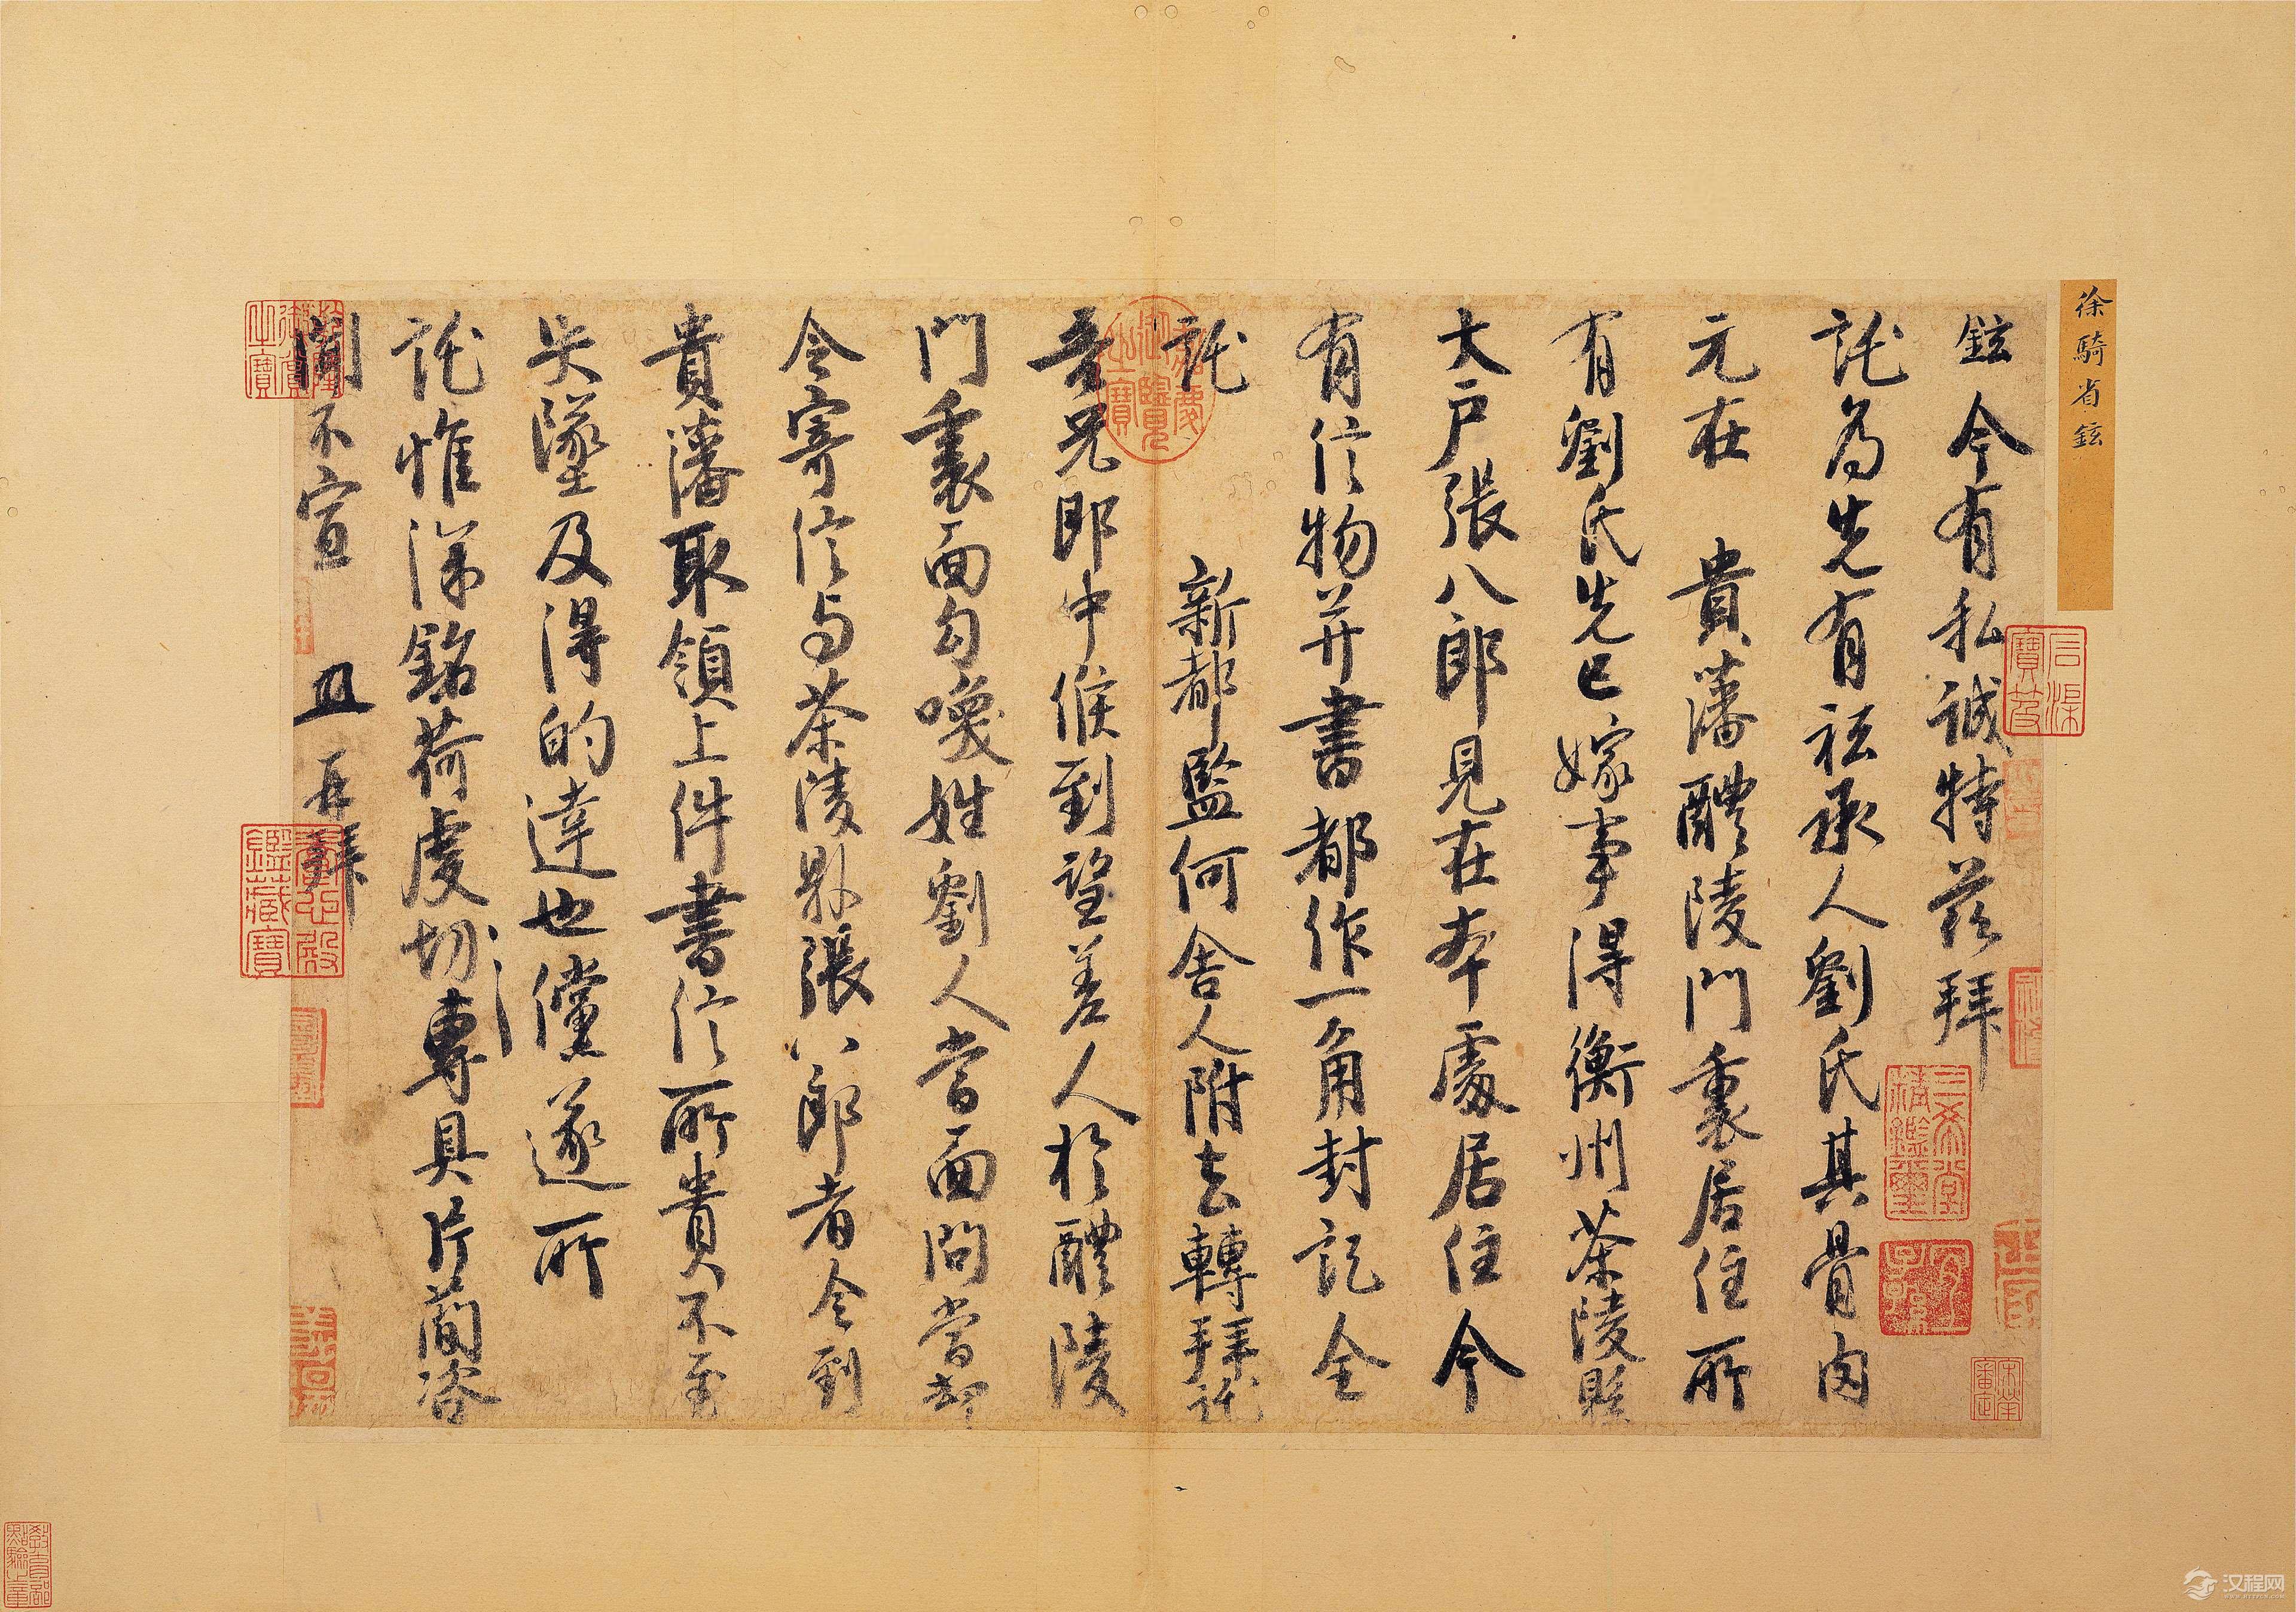 徐騎省鉉
鉉今有私誠特茲拜
託為先有祗承人劉氏其骨肉
元在 貴藩醴陵門裏居住所
有劉氏先已嫁事得衡州茶陵縣
大戶張八郎見在本處居住今
有信物并書都作一角封記全
託 新都監何舍人附去轉拜託
吾兄郎中候到望差人於醴陵
門裏面勾喚姓劉人當面問當却
令寄信与茶陵縣張八郎者令到
貴藩取領上件書信所貴不至
失墜及得的達也儻遂所
託惟深銘荷虔切專具片簡咨
聞不宣 且再拜
嘉慶御覽之寶
三希堂精鑑璽
宜子孫
养心殿鑑藏寶
教育部點驗之章
汉程网